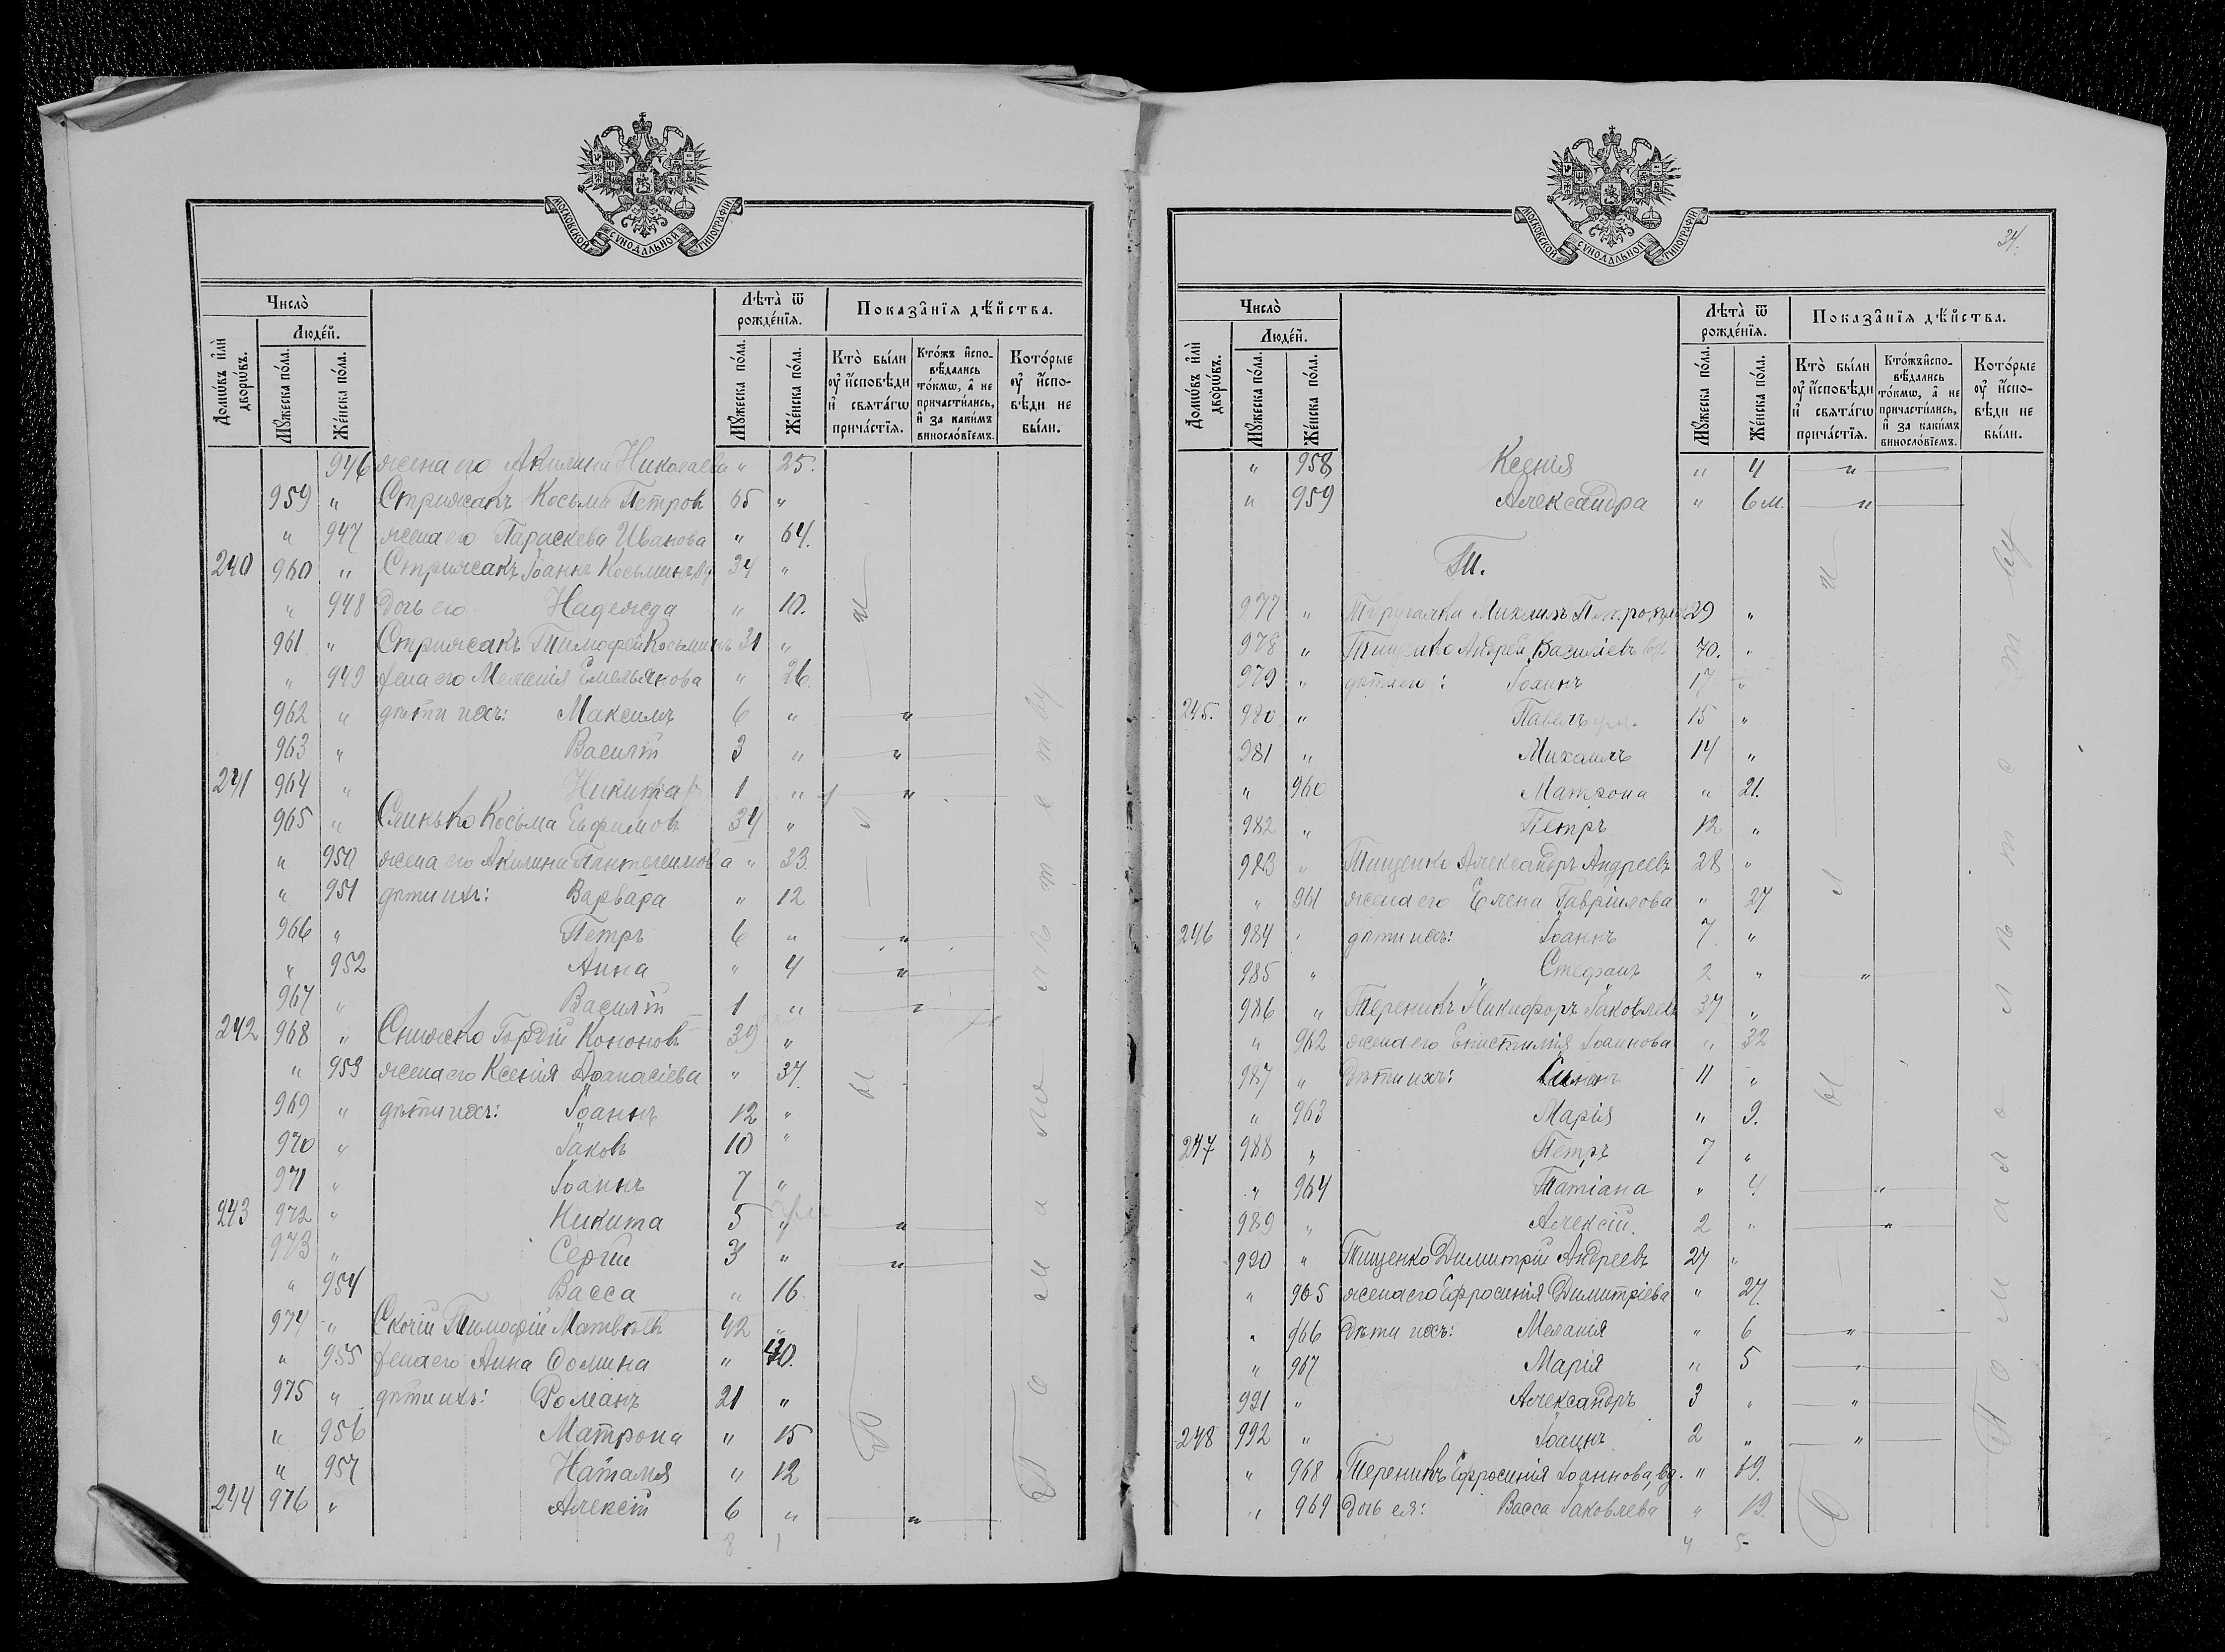 МОСКОВСКОЙ СѴНОДАЛЬНОЙ ТИПОГРАФІИ
Число̀
Домѡ́въ и҆лѝ дворѡ́въ.
Люде́й.
Мꙋ́жеска по́ла.
Же́нска по́ла.
Лѣта̀ ѿ рожде́нїѧ.
Мꙋ́жеска по́ла.
Же́нска по́ла.
Показа̑нїѧ дѣ́йства.
Кто̀ бы́ли ᲂу҆ и҆́сповѣди и҆ свѧта́гѡ прича́стїѧ.
Кто́жъ и҆спо-вѣ́дались то́кмѡ, а҆ не причасти́лись, и҆ за каки́мъ виносло́вїемъ.
Кото́рые ᲂу҆ и҆́спо-вѣди не бы́ли.
946 жена его Акилина Николаева " 25.
959 " Стрижакъ Косьма Петровъ 65 "
" 947 жена его Параскева Иванова " 64.
240 960 " Стрижакъ Іоаннъ Косьминъ 34 "
" 948 дочь его Надежда " 10.
961 " Стрижакъ Тимофей Косьминъ 31 "
" 949 жена его Меланія Емельянова " 26.
962 " дѣти ихъ: Максимъ 6 " "
963 " Василій 3 " "
241 964 " Никита 1 " "
965 " Слинько Косьма Евфимовъ 34 "
" 950 жена его Акилина Пантелеимонова " 33.
" 951 дѣти ихъ: Варвара " 12
966 " Петръ 6 " "
" 952 Анна " 4 "
967 " Василій 1 " "
242 968 " Снижко Гордій Кононовъ 39 "
" 953 жена его Ксенія Афанасіева " 37.
969 " дѣти ихъ: Іоаннъ 12 "
970 " Іаковъ 10 "
971 " Іоаннъ 7 "
243 972 " Никита 5 " "
973 " Сергій 3 " "
" 954 Васса " 16.
974 " Скочій Тимофій Матвѣевъ 42 "
" 955 жена его Анна Ѳомина " 40.
975 " дѣти ихъ: Романъ 21 "
" 956 Матрона " 15
" 957 Наталія " 12
244 976 " Алексій 6 " "
8 1
МОСКОВСКОЙ СѴНОДАЛЬНОЙ ТИПОГРАФІИ
34.
Число̀
Домѡ́въ и҆лѝ дворѡ́въ.
Люде́й.
Мꙋ́жеска по́ла.
Же́нска по́ла.
Лѣта̀ ѿ рожде́нїѧ.
Мꙋ́жеска по́ла.
Же́нска по́ла.
Показа̑нїѧ дѣ́йства.
Кто̀ бы́ли ᲂу҆ и҆́сповѣди и҆ свѧта́гѡ прича́стїѧ.
Кто́жъ и҆спо-вѣ́дались то́кмѡ, а҆ не причасти́лись, и҆ за каки́мъ виносло́вїемъ.
Кото́рые ᲂу҆ и҆́спо-вѣди не бы́ли.
" 958 Ксенія " 4 "
" 959 Александра " 6 м. "
Т.
977 " Михаилъ 29 "
978 " Тищенко Андрей Василіевъ вд. 70. "
979 " дѣти его: Іоаннъ 17 "
245. 980 " Павелъ ум. 15 "
981 " Михаилъ 14 "
" 960 Матрона " 21.
982 " Петръ 12 "
983 " Тищенко Александръ Андреевъ 28 "
" 961 жена его Елена Гавріилова " 27
246 984 дѣти ихъ: Іоаннъ 7 "
985 " Стефанъ 2 " "
986 " Тереникъ Никифоръ Іаковлев 37 "
" 962 жена его Епистимія Іоаннова " 32
987 " дѣти ихъ: 11 "
" 963 Марія " 9.
247 988 " Петръ 7 "
" 964 Татіана " 4 "
989 " Алексій. 2 " "
990 " Тищенко Димитрій Андреевъ 27 "
" 965 жена его Ефросинія Димитріева " 27.
" 966 дѣти ихъ: Меланія " 6 "
" 967 Марія " 5 "
991 " Александръ 3 " "
248 992 " Іоаннъ 2 " "
" 968 Тереникъ Ефросинія Іоаннова, вд. " 59.
" 969 дочь ея: Васса Іаковлева " 19.
4 5